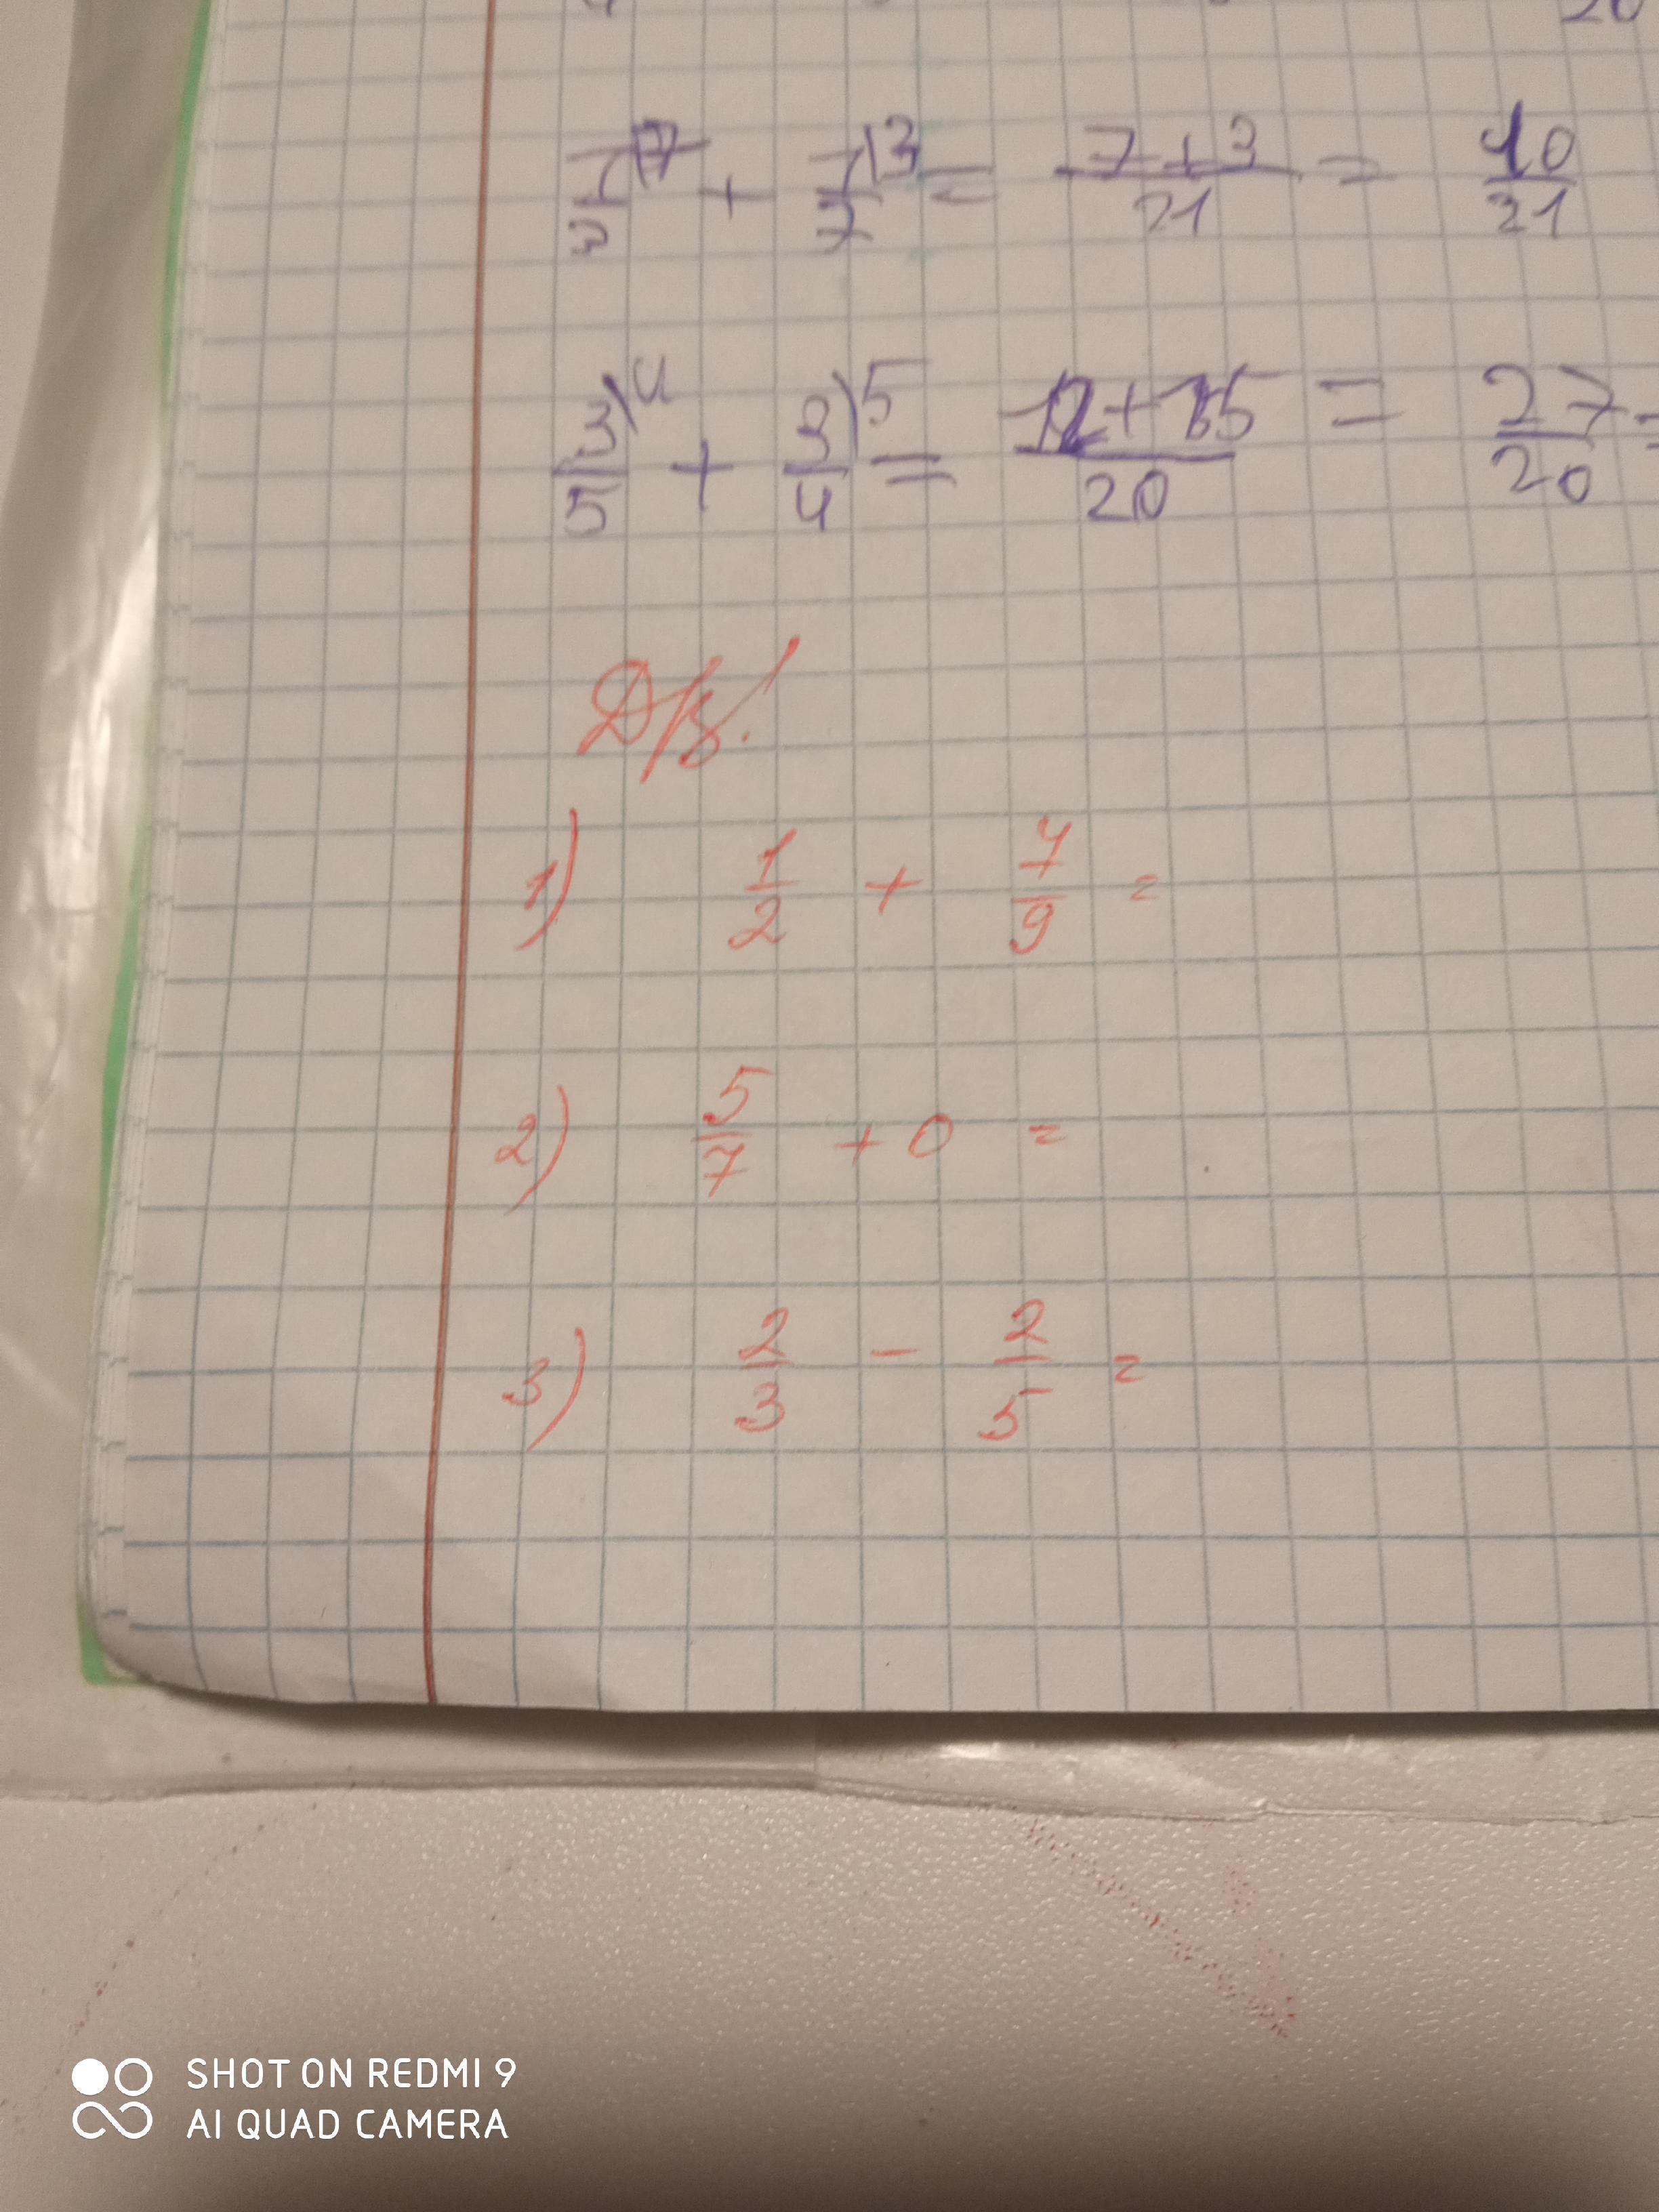 20
1/3 + 1/7 = 7+3/21 = 10/21
3/5 + 3/4 = 12+15/20 = 27/20 =
Д/з!
1) 1/2 + 7/9 =
2) 5/7 + 0 =
3) 2/3 - 2/5 =
SHOT ON REDMI 9
AI QUAD CAMERA